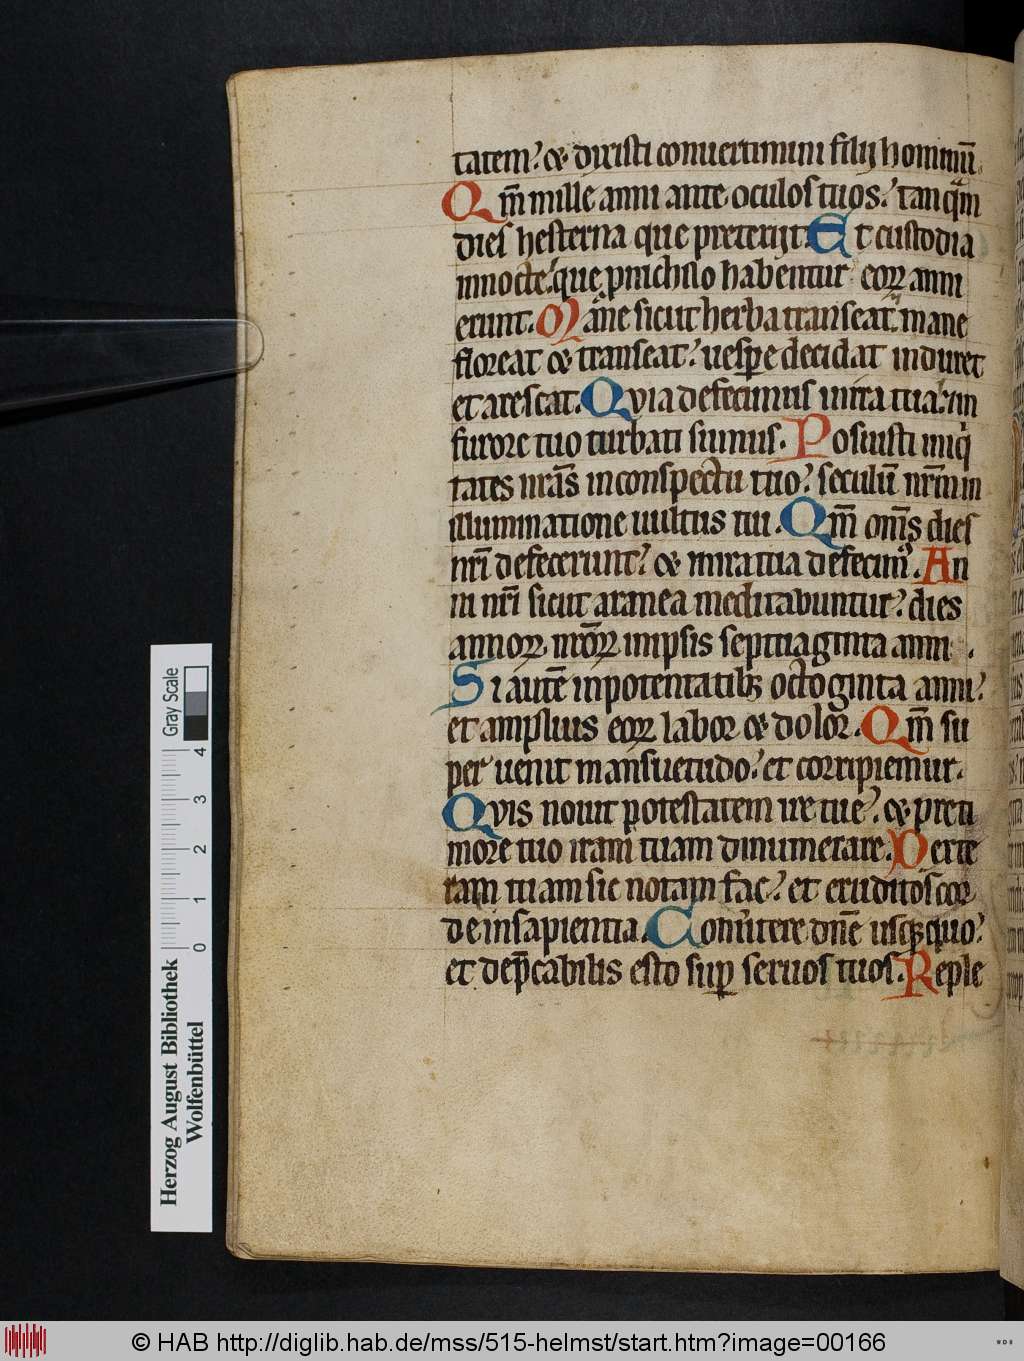 tatem? & dixisti conuertimini filij hominū.
Qm̄ mille anni ante oculos tuos? tanqᵃm
dies hesterna que preterijt. Et custodia
in nocte? que p nichilo habentur eoꝝ anni
erunt. Mane sicut herba transeat. mane
floreat & transeat? uespe decidat induret
et arescat. Qvia defecimus in ira tua? in
furore tuo turbati sumus. Posuisti iniqⁱ
tates nrās in conspectu tuo? seculū nrm̄ in
illuminatione uultus tui. Qm̄ om̄s dies
nrī defecerunt? & in ira tua defecimꝰ. An
ni nrī sicut aranea meditabuntur? dies
annoꝝ nrōꝝ in ipsis septuaginta anni.
Si autē in potentatibꝫ octoginta anni?
et amplius eoꝝ labor & dolor. Qm̄ su
per uenit mansuetudo? et corripiemur.
Qvis nouit potestatem ire tue? & pre ti
more tuo iram tuam dinumerare. Dexte
ram tuam sic notam fac? et eruditos cor
de in sapientia. Conutere dn̄e usqꝫquo?
et dep̄cabilis esto sup seruos tuos. Reple
Gray Scale
0 1 2 3 4
Herzog August Bibliothek
Wolfenbüttel
© HAB http://diglib.hab.de/mss/515-helmst/start.htm?image=00166